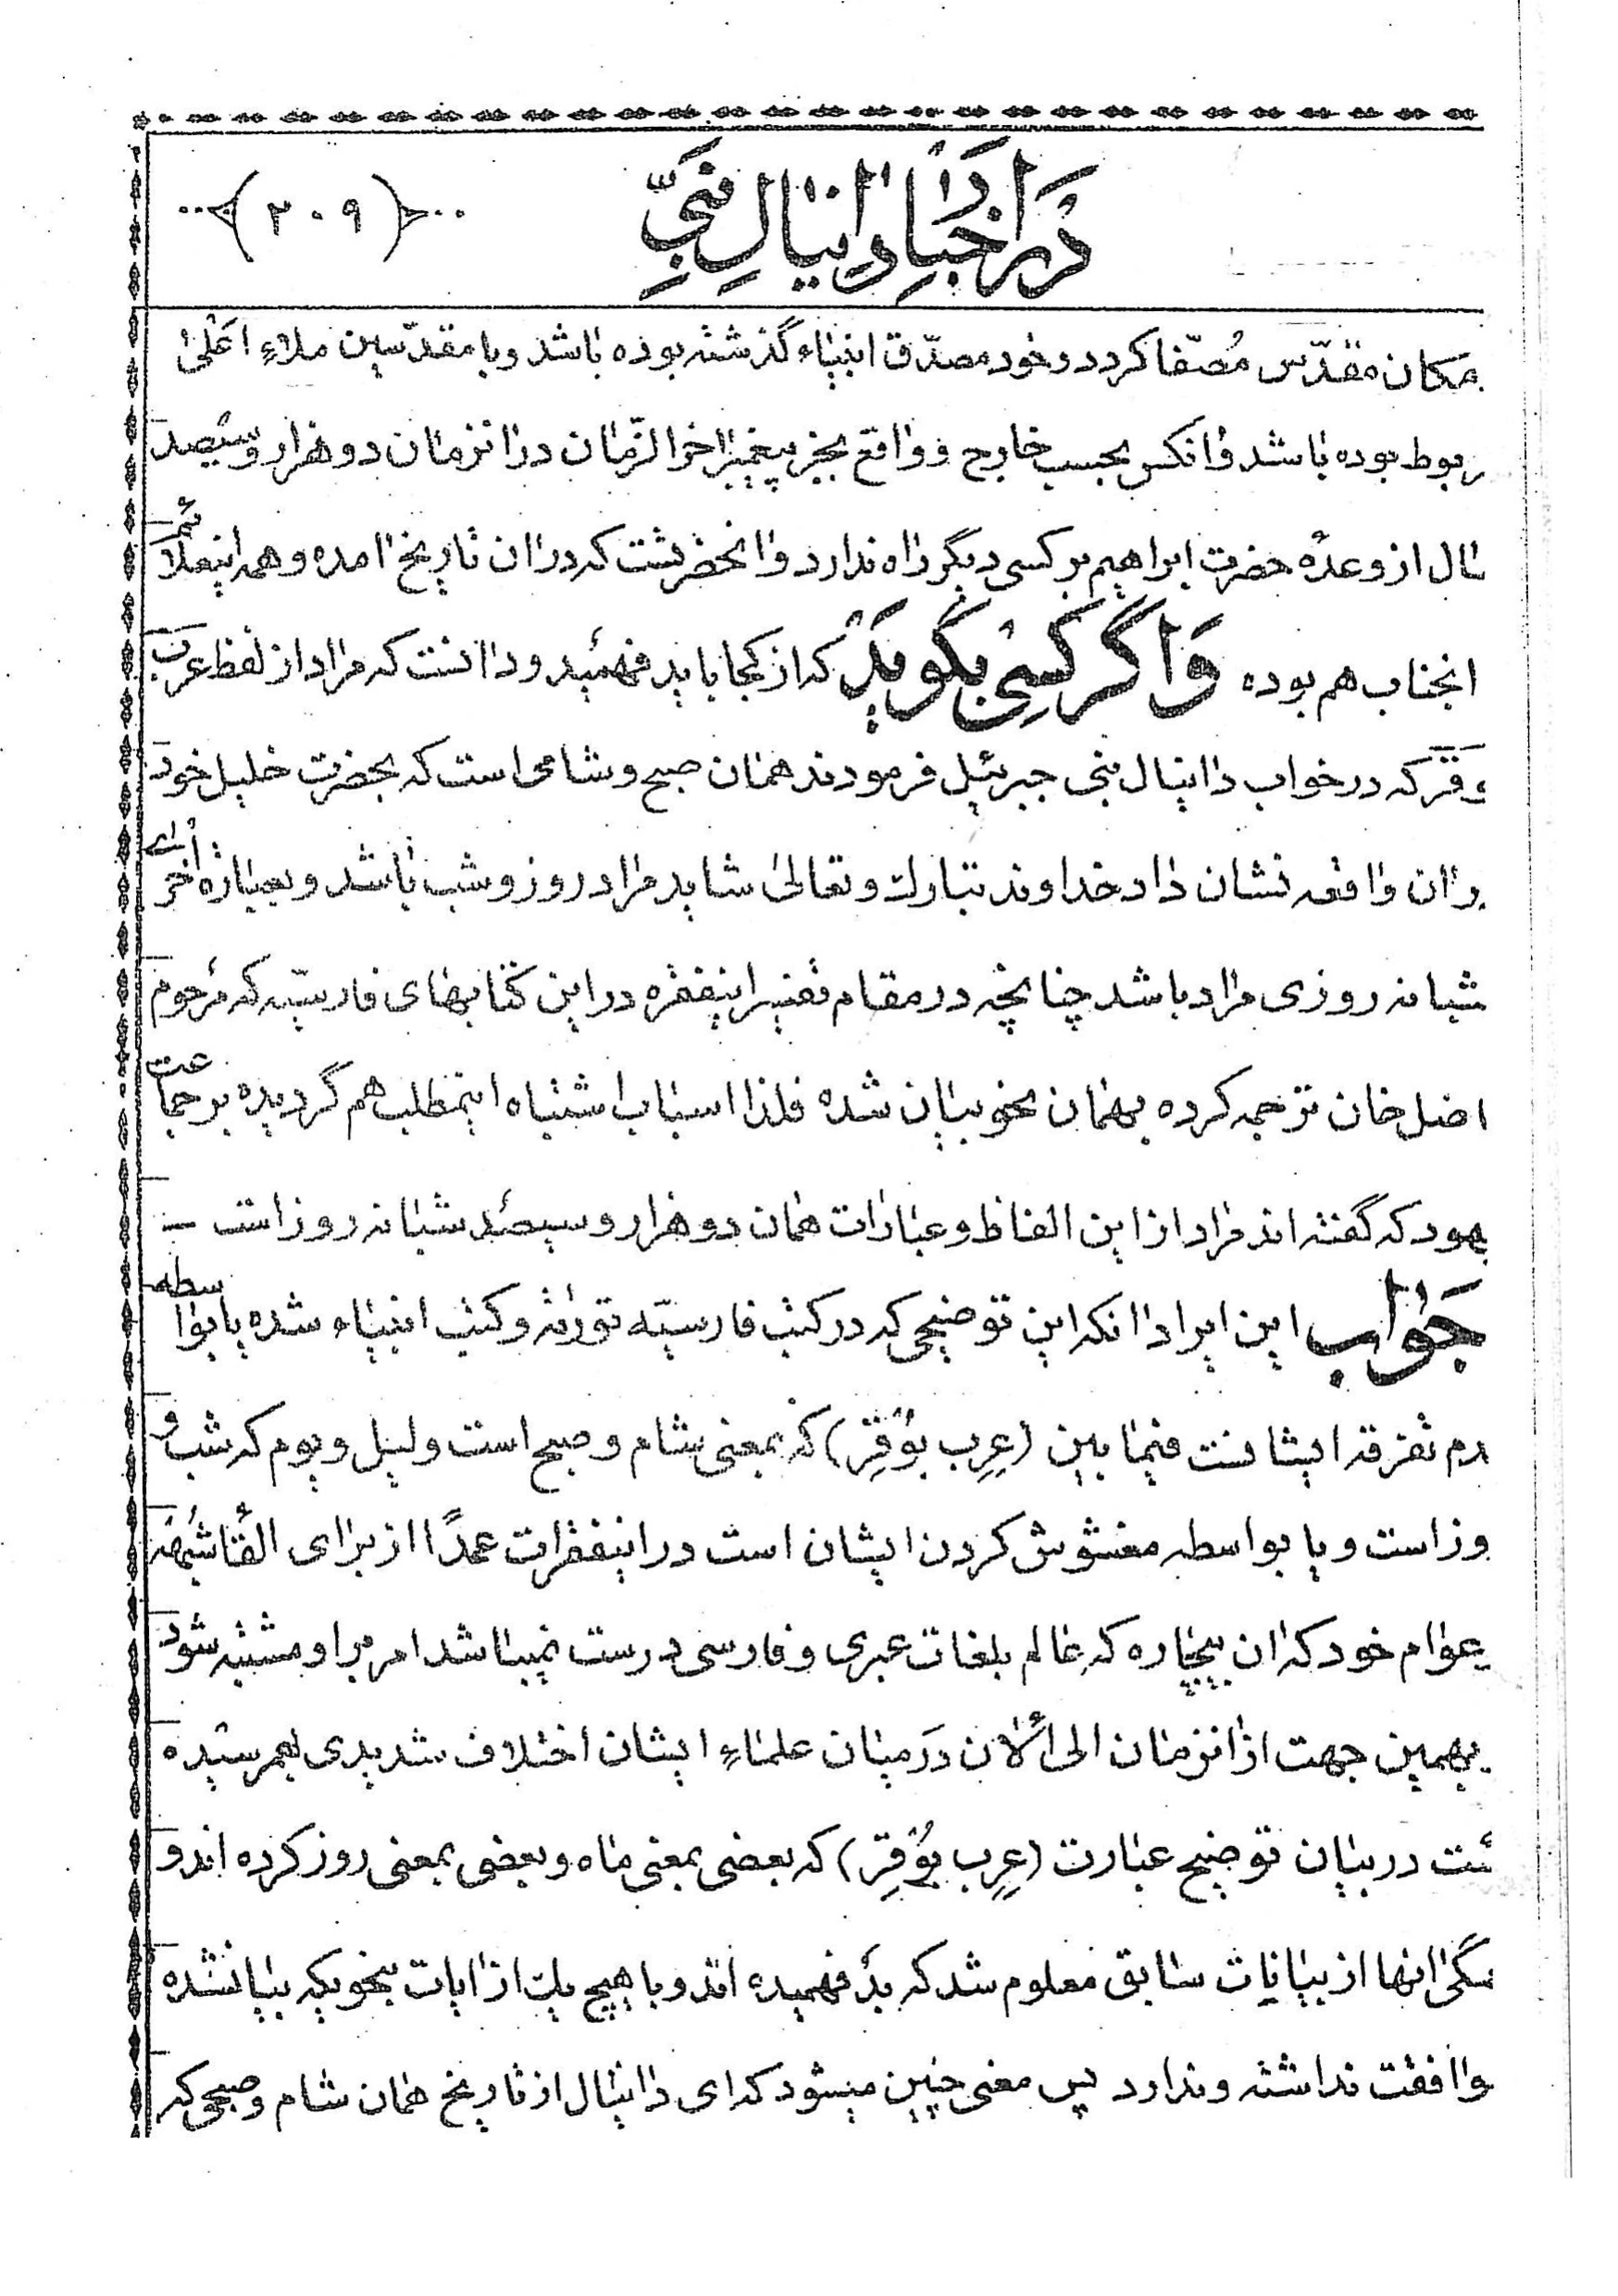 در اخبار دانیال نبی
(۲۰۹)
مکان مقدّس مُصفّا کردد و خود مصدّق انبیاء گذشته بوده باشد و با مقدّسین ملاءِ اعلیٰ
ربوط بوده باشد و انکس بحسب خارج و واقع بجز پیغمبر اخر الزّمان در انزمان دو هزار و سیصد
سال از وعدهٔ حضرت ابراهیم بر کسی دیگر راه ندارد و انحضرتست که در ان تاریخ امده و همه اینعلائم
انجناب هم بوده وَاگر کسی بگوید که از کجا باید فهمید و دانست که مراد از لفظ عرب
وقر که در خواب دانیال نبی جبرئیل فرمودند همان صبح و شامی است که بحضرت خلیل خود
ران واقعه نشان داد خداوند تبارك و تعالیٰ شاید مراد روز و شب باشد و بعبارة اخرای
شبانه روزی مراد باشد چنانچه در مقام تفسیر اینفقره در این کتابهای فارسیّه که مرحوم
اضل خان ترجمه کرده بهمان نحو بیان شده فلذا اسباب اشتباه اینمطلب هم گردیده بر جماعت
یهود که گفته اند مراد از این الفاظ و عبارات همان دو هزار و سیصد شبانه روز است
جَواب این ایراد انکه این توضیحی که در کتب فارسیّه توریة و کتب انبیاء شده یا بواسطه
دم تفرقه ایشانست فیما بین (عِرِب بوُقِر) که بمعنی شام و صبح است و لیل و یوم که شب و
وز است و یا بواسطه مغشوش کردن ایشان است در اینفقرات عمدًا از برای القا شبهه
بعوام خود که ان بیچاره که عالم بلغات عبری و فارسی درست نمیباشد امر بر او مشتبه شود
بهمین جهت از انزمان الی الان در میان علماءِ ایشان اختلاف شدیدی بهم رسیده
ئت در بیان توضیح عبارت (عِرِب بوُقِر) که بعضی بمعنی ماه و بعضی بمعنی روز کرده اند و
سگی انها از بیانات سابق معلوم شد که بد فهمیده اند و با هیچ یك از ایات بنحویکه بیانشده
وافقت نداشته و ندارد پس معنی چنین میشود که ای دانیال از تاریخ همان شام و صبحی که